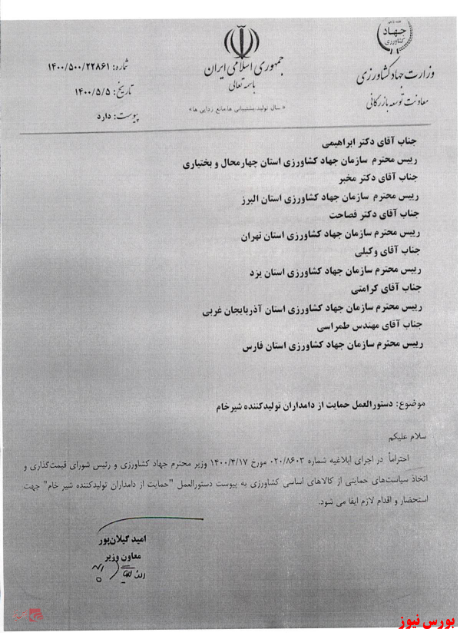 جهاد
کشاورزی
وزارت جهاد کشاورزی
معاونت توسعه بازرگانی
جمهوری اسلامی ایران
باسمه تعالی
« سال تولید، پشتیبانی ها، مانع زدایی ها »
شماره: ۱۴۰۰/۵۰۰/۲۲۸۶۱
تاریخ: ۱۴۰۰/۵/۵
پیوست: دارد
جناب آقای دکتر ابراهیمی
رییس محترم سازمان جهاد کشاورزی استان چهارمحال و بختیاری
جناب آقای دکتر مخبر
رییس محترم سازمان جهاد کشاورزی استان البرز
جناب آقای دکتر فصاحت
رییس محترم سازمان جهاد کشاورزی استان تهران
جناب آقای وکیلی
رییس محترم سازمان جهاد کشاورزی استان یزد
جناب آقای کرامتی
رییس محترم سازمان جهاد کشاورزی استان آذربایجان غربی
جناب آقای مهندس طهمراسی
رییس محترم سازمان جهاد کشاورزی استان فارس
موضوع: دستورالعمل حمایت از دامداران تولیدکننده شیرخام
سلام علیکم
احتراماً در اجرای ابلاغیه شماره ۰۲۰/۸۶۰۳ مورخ ۱۴۰۰/۴/۱۷ وزیر محترم جهاد کشاورزی و رئیس شورای قیمت‌گذاری و
اتخاذ سیاست‌های حمایتی از کالاهای اساسی کشاورزی به پیوست دستورالعمل "حمایت از دامداران تولیدکننده شیر خام" جهت
استحضار و اقدام لازم ایفا می شود.
امید گیلان‌پور
معاون وزیر
بورس نیوز